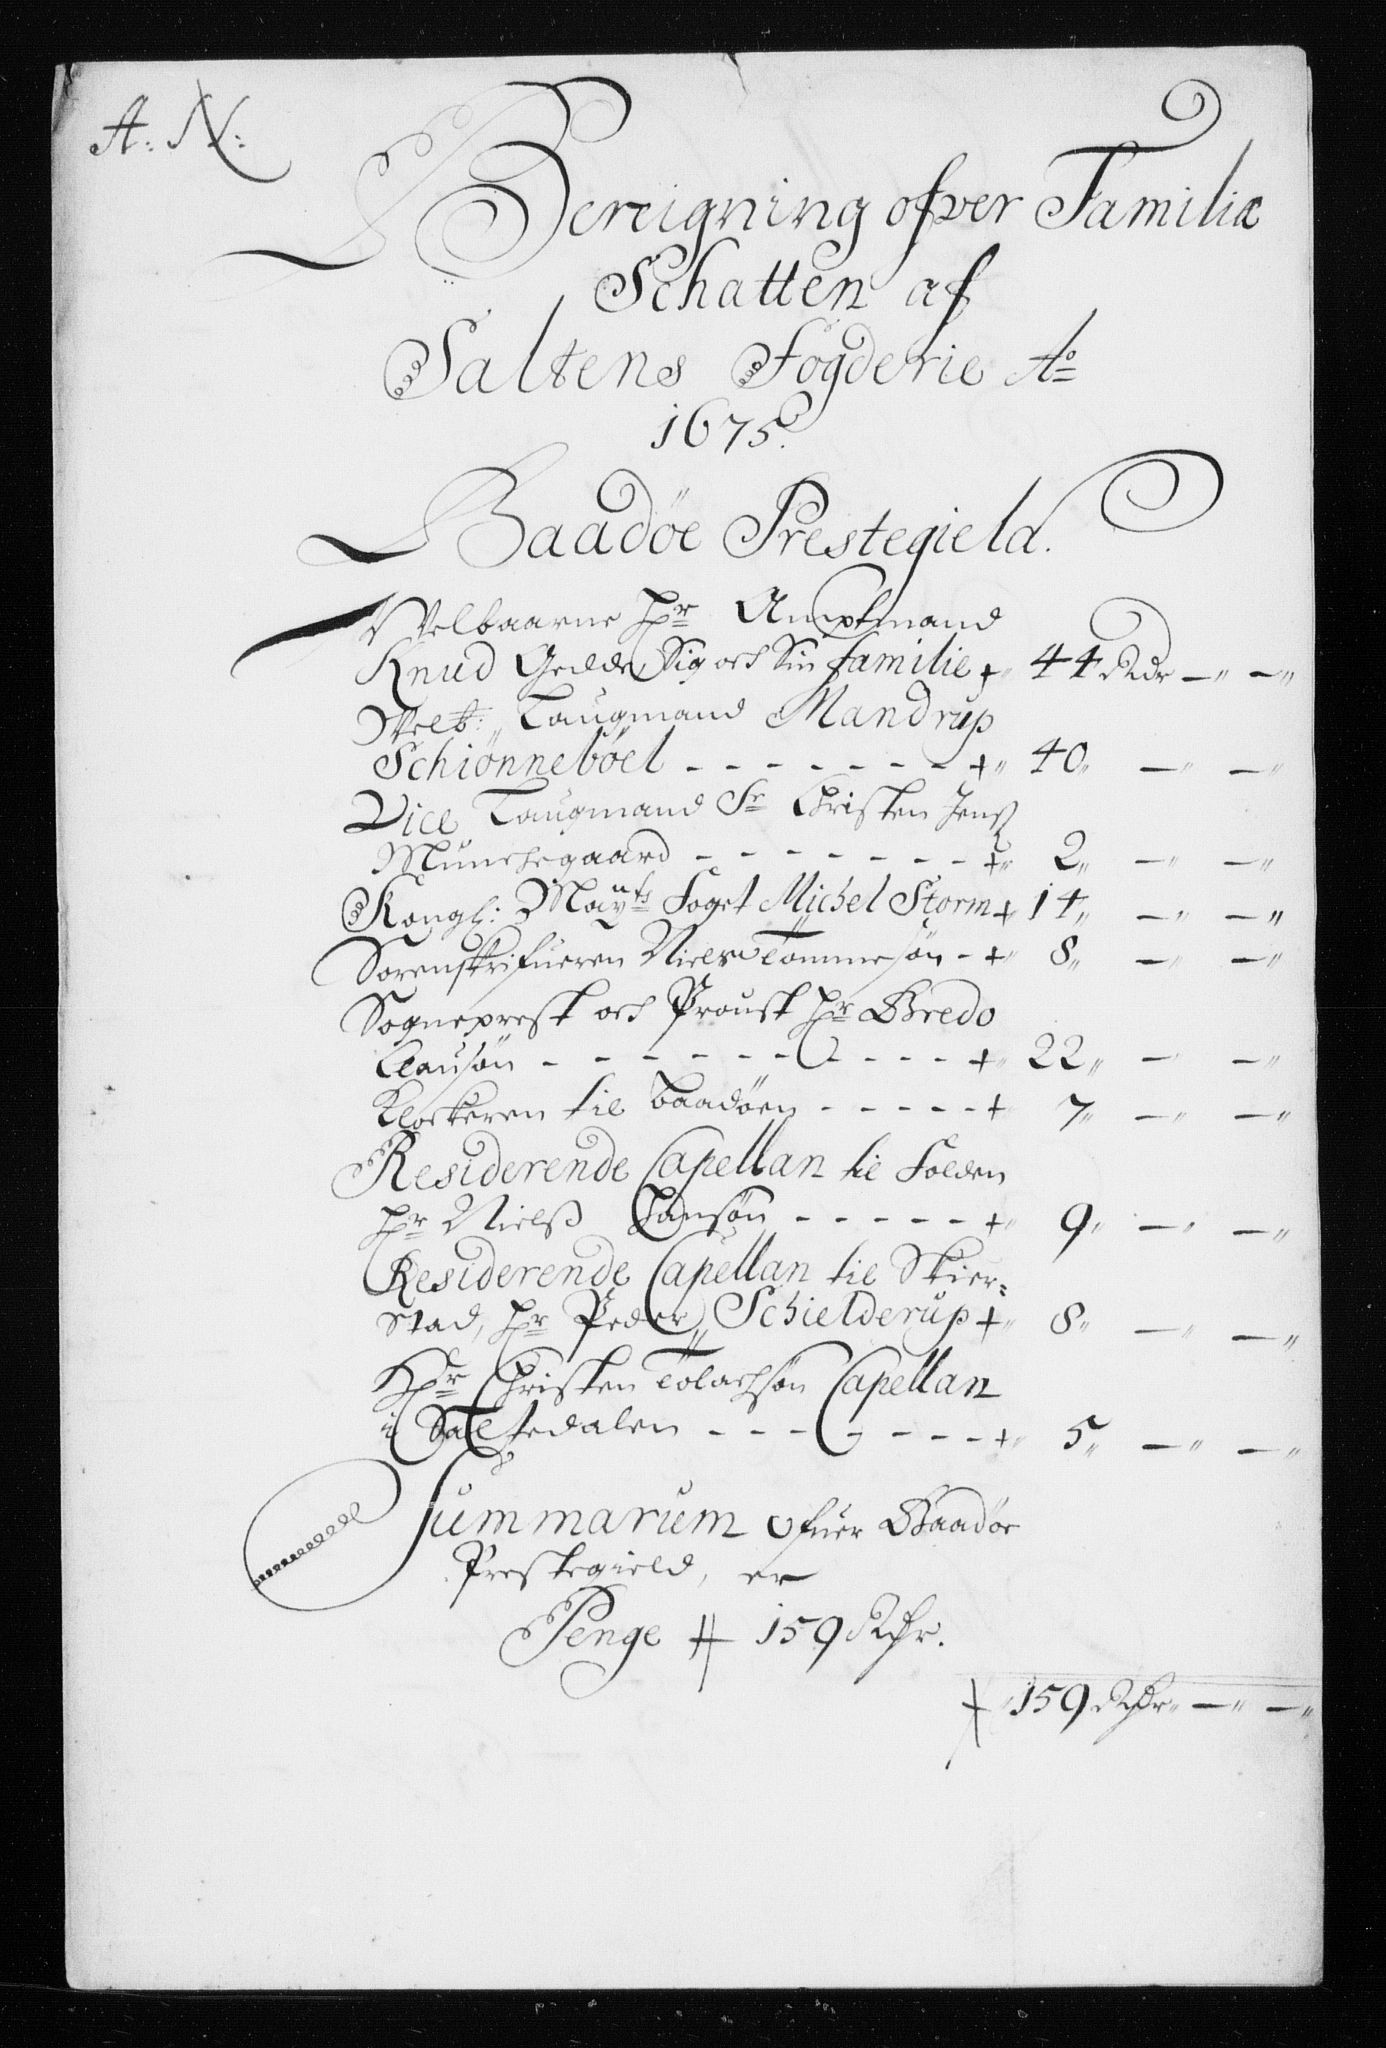 A: N:
Bereigning ofver Familiæ
Schatten af
Saltens Fogderie Ao
1675.
Baadöe Prestegield.
Velbaarne Hr Amptmand
Knud Gedde Sig och Sin familie + 44 Rdr — —
Velb: Laugmand Mandrup
Schiönneböel - - - - - - - + 40 — —
Vice Laugmand Sr Christen Jenß
Munchegaard - - - - - - - + 2 — —
Kongl: Mayts Foget Michel Storm + 14 — —
Sorenskrifueren Niels Tommesön - + 8 — —
Sogneprest och Proust Hr Bredo
Clausön - - - - - - - - - + 22 — —
Klockeren til Baadöen - - - - - + 7 — —
Residerende Capellan til Folden
Hr Nielß Hansön - - - - - + 9 — —
Residerende Capellan til Skier-
stad, Hr Peder Schielderup + 8 — —
Hr Christen Tolachsön Capellan
i Saltedalen - - - - - - - + 5 — —
Summarum ofuer Baadöe
Prestegield, er
Penge + 159 Rdr.
+ 159 Rdr — —